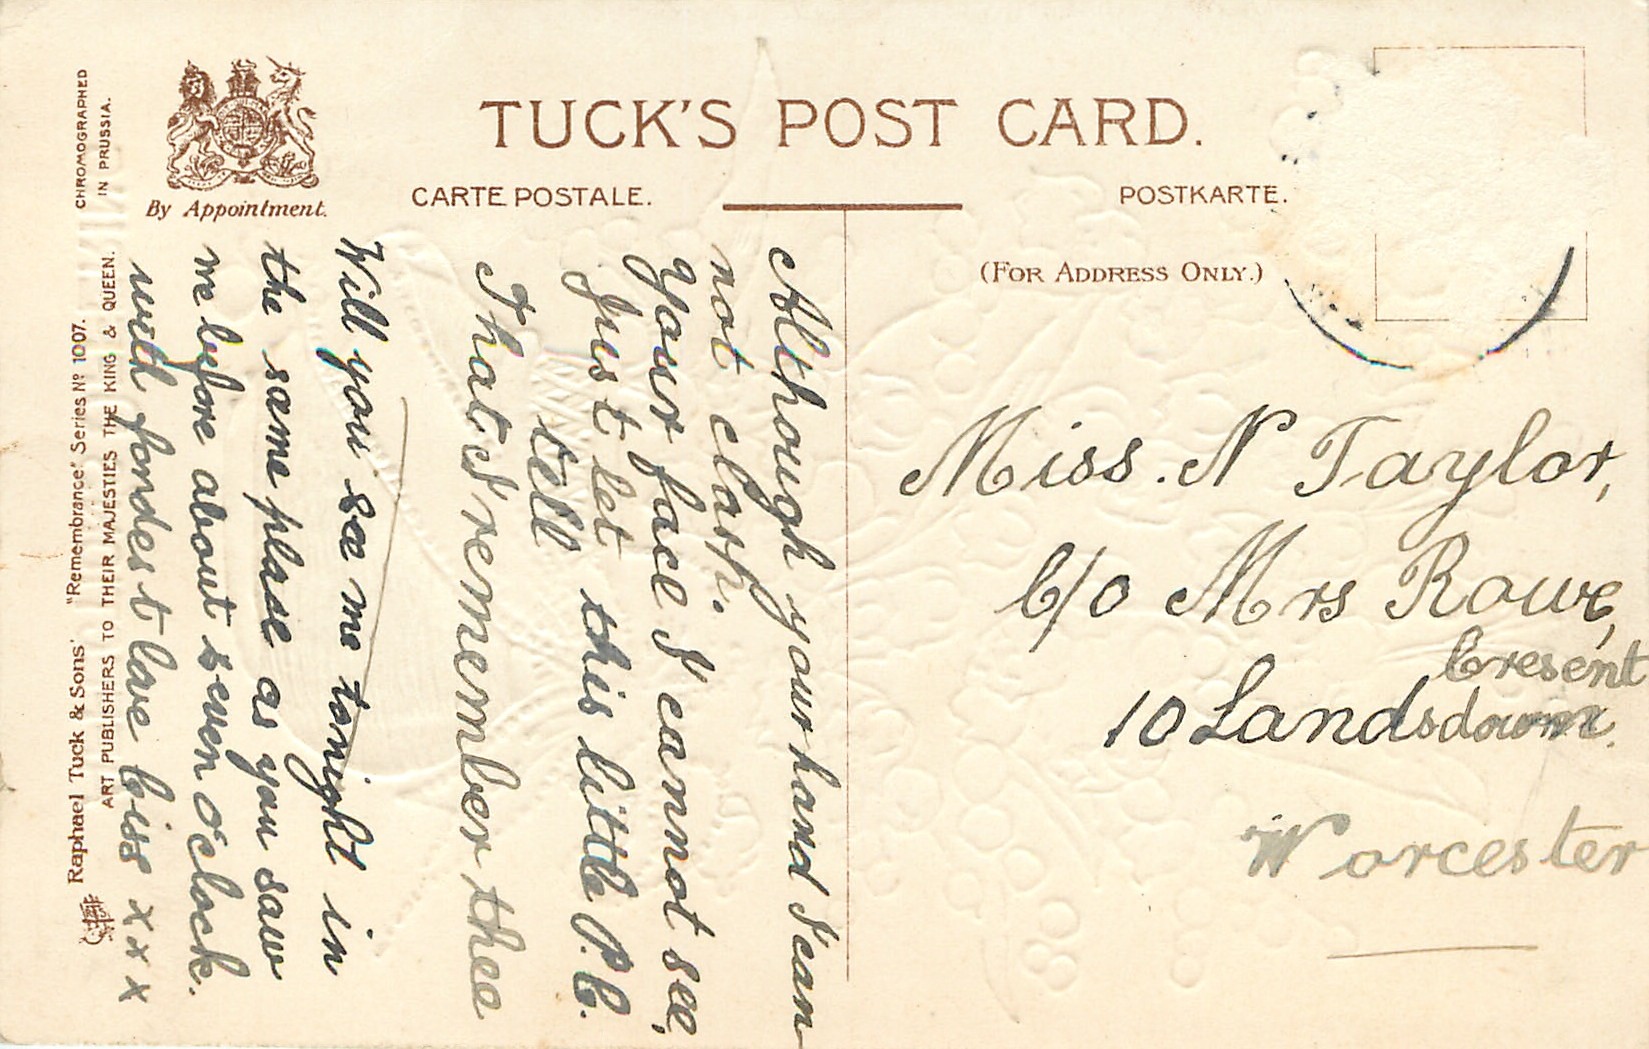 TUCK'S POST CARD.
CARTE POSTALE.
POSTKARTE.
(FOR ADDRESS ONLY.)
By Appointment.
CHROMOGRAPHED
IN PRUSSIA.
Raphael Tuck & Sons' "Remembrance" Series Nº 1007.
ART PUBLISHERS TO THEIR MAJESTIES THE KING & QUEEN.
Although your hand I can
not clash.
Your face I cannot see,
Just let this little P.C.
tell
That I remember thee
Will you see me tonight in
the same plase as you saw
me before about seven Oclock.
with fondest love kiss x x x
Miss. N Taylor,
C/O Mrs Rowe,
Cresent
10 Landsdown
Worcester